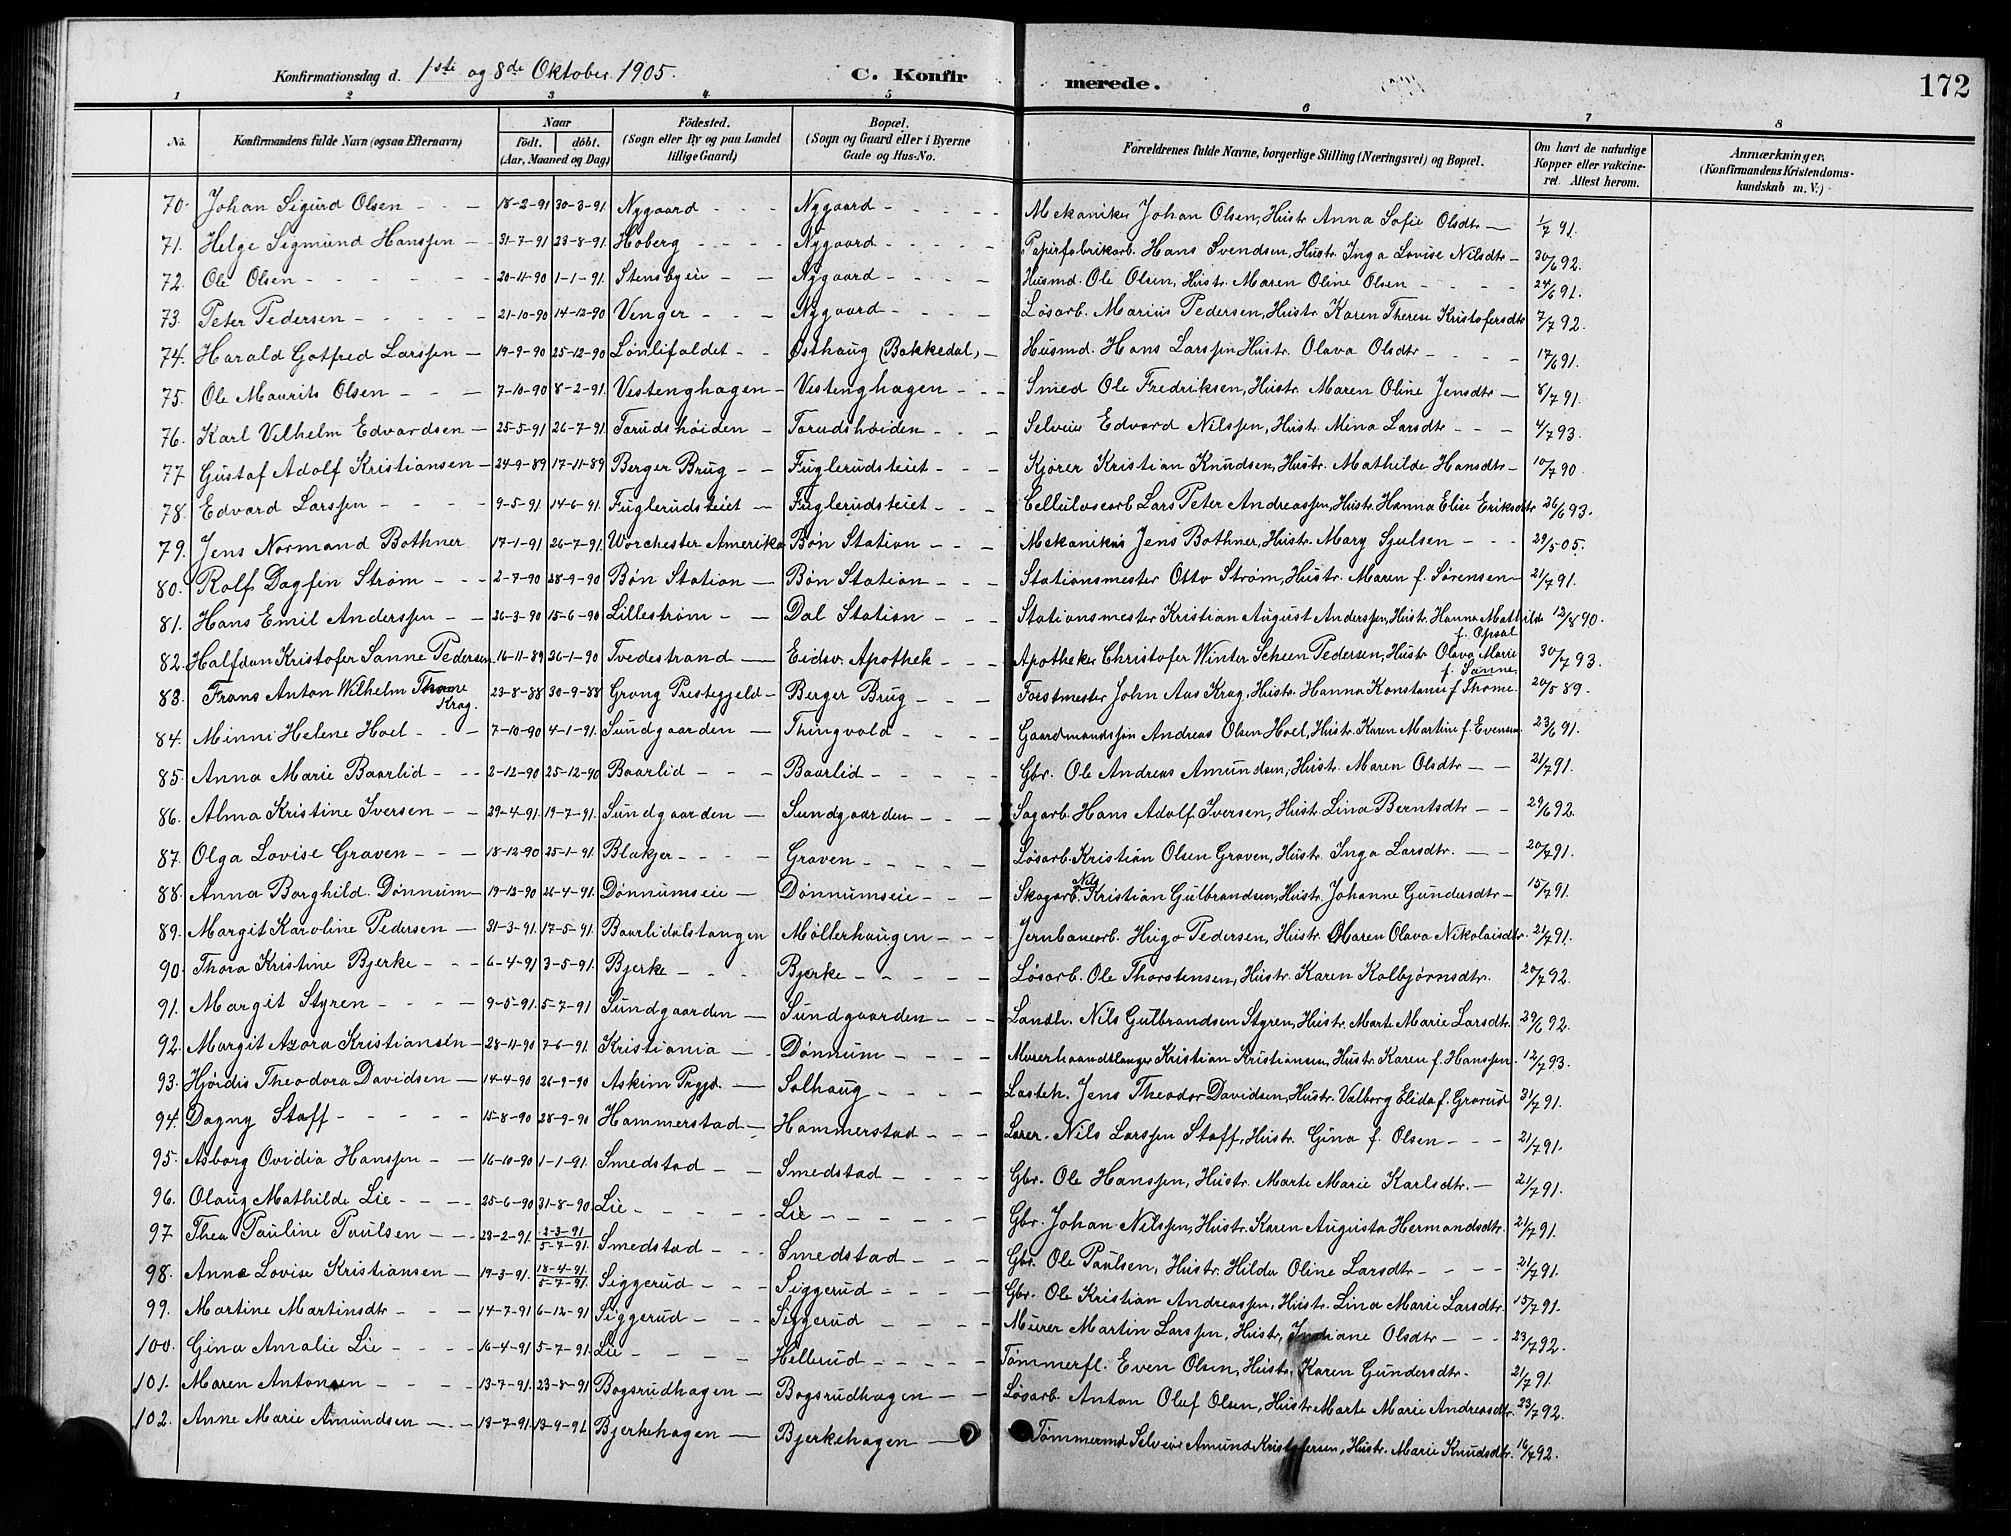 Konfirmationsdag d. 1ste og 8de Oktober 1905. C. Konfirmerede. 172
1 2 3 4 5 6 7 8
No. | Konfirmandens fulde Navn (ogsaa Efternavn) | Naar født. døbt. (Aar, Maaned og Dag) | Fødested. (Sogn eller By og paa Landet tillige Gaard) | Bopæl. (Sogn og Gaard eller i Byerne Gade og Hus-No. | Forældrenes fulde Navne, borgerlige Stilling (Næringsvei) og Bopæl. | Om havt de naturlige Kopper eller vakcineret. Attest herom. | Anmærkninger. (Konfirmandens Kristendomskundskab m. V.)
70. Johan Sigurd Olsen 18-2-91 30-3-91 Nygaard Nygaard Mekaniker Johan Olsen, Hustr Anna Sofie Olsdtr 1/7 91.
71. Helge Sigmund Hanssen 31-7-91 23-8-91 Hoberg Nygaard Papirfabrikarb. Hans Svendsen, Hustr. Inga Lovise Nilsdtr 30/6 92.
72. Ole Olsen 20-11-90 1-1-91. Stensbyeie Nygaard Husmd. Ole Olsen, Hustr. Maren Oline Olsen 24/6 91.
73. Peter Pedersen 21-10-90 14-12-90 Venger Nygaard Løsarb. Marius Pedersen, Hustr. Karen Therese Kristofersdtr 7/7 92.
74. Harald Gotfred Larssen 19-9-90 25-12-90 Lønlifaldet Østhaug (Bakkedal) Husmd. Hans Larssen Hustr. Olava Olsdtr 17/6 91.
75. Ole Maurits Olsen 7-10-90 8-2-91. Vestenghagen Vestenghagen Smed Ole Fredriksen, Hustr. Maren Oline Jensdtr 8/7 91.
76. Karl Vilhelm Edvardsen 25-5-91 26-7-91. Tørudshøiden Tørudshøiden Selveier Edvard Nilssen, Hustr. Mina Larsdtr 4/7 93.
77 Gustaf Adolf Kristiansen 24-9-89 17-11-89 Berger Brug Fuglerudsteiet Kjører Kristian Knudsen, Hustr. Mathilde Hansdtr 10/7 90.
78. Edvard Larssen 9-5-91 14-6-91. Fuglerudsteiet Fuglerudsteiet Cellulosearb Lars Peter Andreassen, Hustr. Hanna Elise Eriksdtr 26/6 93.
79. Jens Normand Bothner 17-1-91 26-7-91. Worchester Amerika Bøn Station Mekanikus Jens Bothner, Hustr. Mary Gulsen 29/5 05.
80. Rolf Dagfin Strøm 2-7-90 28-9-90 Bøn Station Bøn Station Stationsmester Otto Strøm, Hustr. Maren f. Sørensen 21/7 91.
81. Hans Emil Anderssen 26-3-90 15-6-90 Lillestrøm Dal Station Stationsmester Kristian August Anderssen, Hustr. Hanna Mathilde f. Opsal 12/8 90.
82. Halfdan Kristofer Sanne Pedersen 16-11-89 26-1-90 Tvedestrand Eidsv. Apothek Apotheker Christofer Winter Scheen Pedersen, Hustr Olava Marie f. Sanne 30/7 93.
83. Frans Anton Wilhelm Thome Krag. 23-8-88 30-9-88 Grong Prestegjeld Berger Brug Forstmester John Aas Krag, Hustr. Hanna Konstance f Thome 20/5 89.
84. Minni Helene Hoel 7-10-90 4-1-91. Sundgaarden Thingvold Gaardmandssøn Andreas Olsen Hoel, Hustr. Karen Martine f. Evensen 23/6 91.
85. Anna Marie Baarlid 2-12-90 25-12-90 Baarlid Baarlid Gbr. Ole Andreas Amundsen, Hustr. Maren Olsdtr 21/7 91.
86. Alma Kristine Iversen 29-4-91. 19-7-91. Sundgaarden Sundgaarden Sagarb. Hans Adolf Iversen, Hustr. Lina Berntsdtr 29/6 92.
87. Olga Lovise Graven 18-12-90 25-1-91. Blakjer Graven Løsarb. Kristian Olsen Graven, Hustr. Inga Larsdtr. 20/7 91.
88. Anna Borghild Dønnum 19-12-90 26-4-91. Dønnumseie Dønnumseie Skogarb. Nils Kristian Gulbrandsen, Hustr. Johanne Gundersdtr 15/7 91.
89. Margit Karoline Pedersen 31-3-91. 17-5-91. Baarlidalstangen Møllerhaugen Jernbanearb. Hugo Pedersen, Hustr. Maren Olava Nikolaisdtr. 21/7 91.
90. Thora Kristine Bjerke 6-4-91 3-5-91. Bjerke Bjerke Løsarb. Ole Thorstensen, Hustr. Karen Kolbjørnsdtr. 20/7 92.
91. Margit Styren 9-5-91. 5-7-91 Sundgaarden Sundgaarden Landh. Nils Gulbrandsen Styren, Hustr. Marte Marie Larsdtr. 29/6 92.
92. Margit Azora Kristiansen 28-11-90 7-6-91. Kristiania Dønnum Murerhaandtlanger Kristian Kristiansen, Hustr. Karen f. Hanssen 12/7 93.
93. Hjørdis Theodora Davidsen 14-4-90 26-9-90 Askim Prgjd. Solhaug Lasteh. Jens Theodor Davidsen, Hustr. Valborg Elida f. Grorud 31/7 91.
94. Dagny Staff 15-8-90 28-9-90 Hammerstad Hammerstad Lærer. Nils Larssen Staff, Hustr. Gina f. Olsen 21/7 91.
95. Asborg Ovidia Hanssen 16-10-90 1-1-91. Smedstad Smedstad Gbr. Ole Hanssen, Hustr. Marte Marie Karlsdtr. 21/7 91.
96. Olaug Mathilde Lie 25-6-90 31-8-90. Lie Lie Gbr. Johan Nilssen, Hustr. Karen Augusta Hermandsdtr. 21/7 91.
97 Thea Pauline Paulsen 23-2-91. 2-3-91 5-7-91. Smedstad Smedstad Gbr. Ole Paulsen, Hustr. Hilda Oline Larsdtr 21/7 91.
98. Anna Lovise Kristiansen 19-3-91. 18-4-91. 5-7-91. Siggerud Siggerud Gbr. Ole Kristian Andreassen, Hustr. Lina Marie Larsdtr. 15/7 91.
99. Martine Martinsdtr 14-7-91 6-12-91 Siggerud Siggerud Murer Martin Larssen, Hustr. Indiane Olsdtr 23/7 92.
100. Gina Amalie Lie 16-4-91 5-7-91. Lie Hillerud Tømmerfl. Even Olsen, Hustr. Karen Gundersdtr. 21/7 91.
101. Maren Antonsen 13-7-91. 23-8-91 Bogsrudhagen Bogsrudhagen Løsarb. Anton Oluf Olsen, Hustr Marte Marie Andreasdtr. 23/7 92.
102. Anne Marie Amundsen 13-7-91. 13-9-91. Bjerkehagen Bjerkehagen Tømmermd Selveier Amund Kristofersen, Hustr. Marie Knudsdtr. 16/7 92.